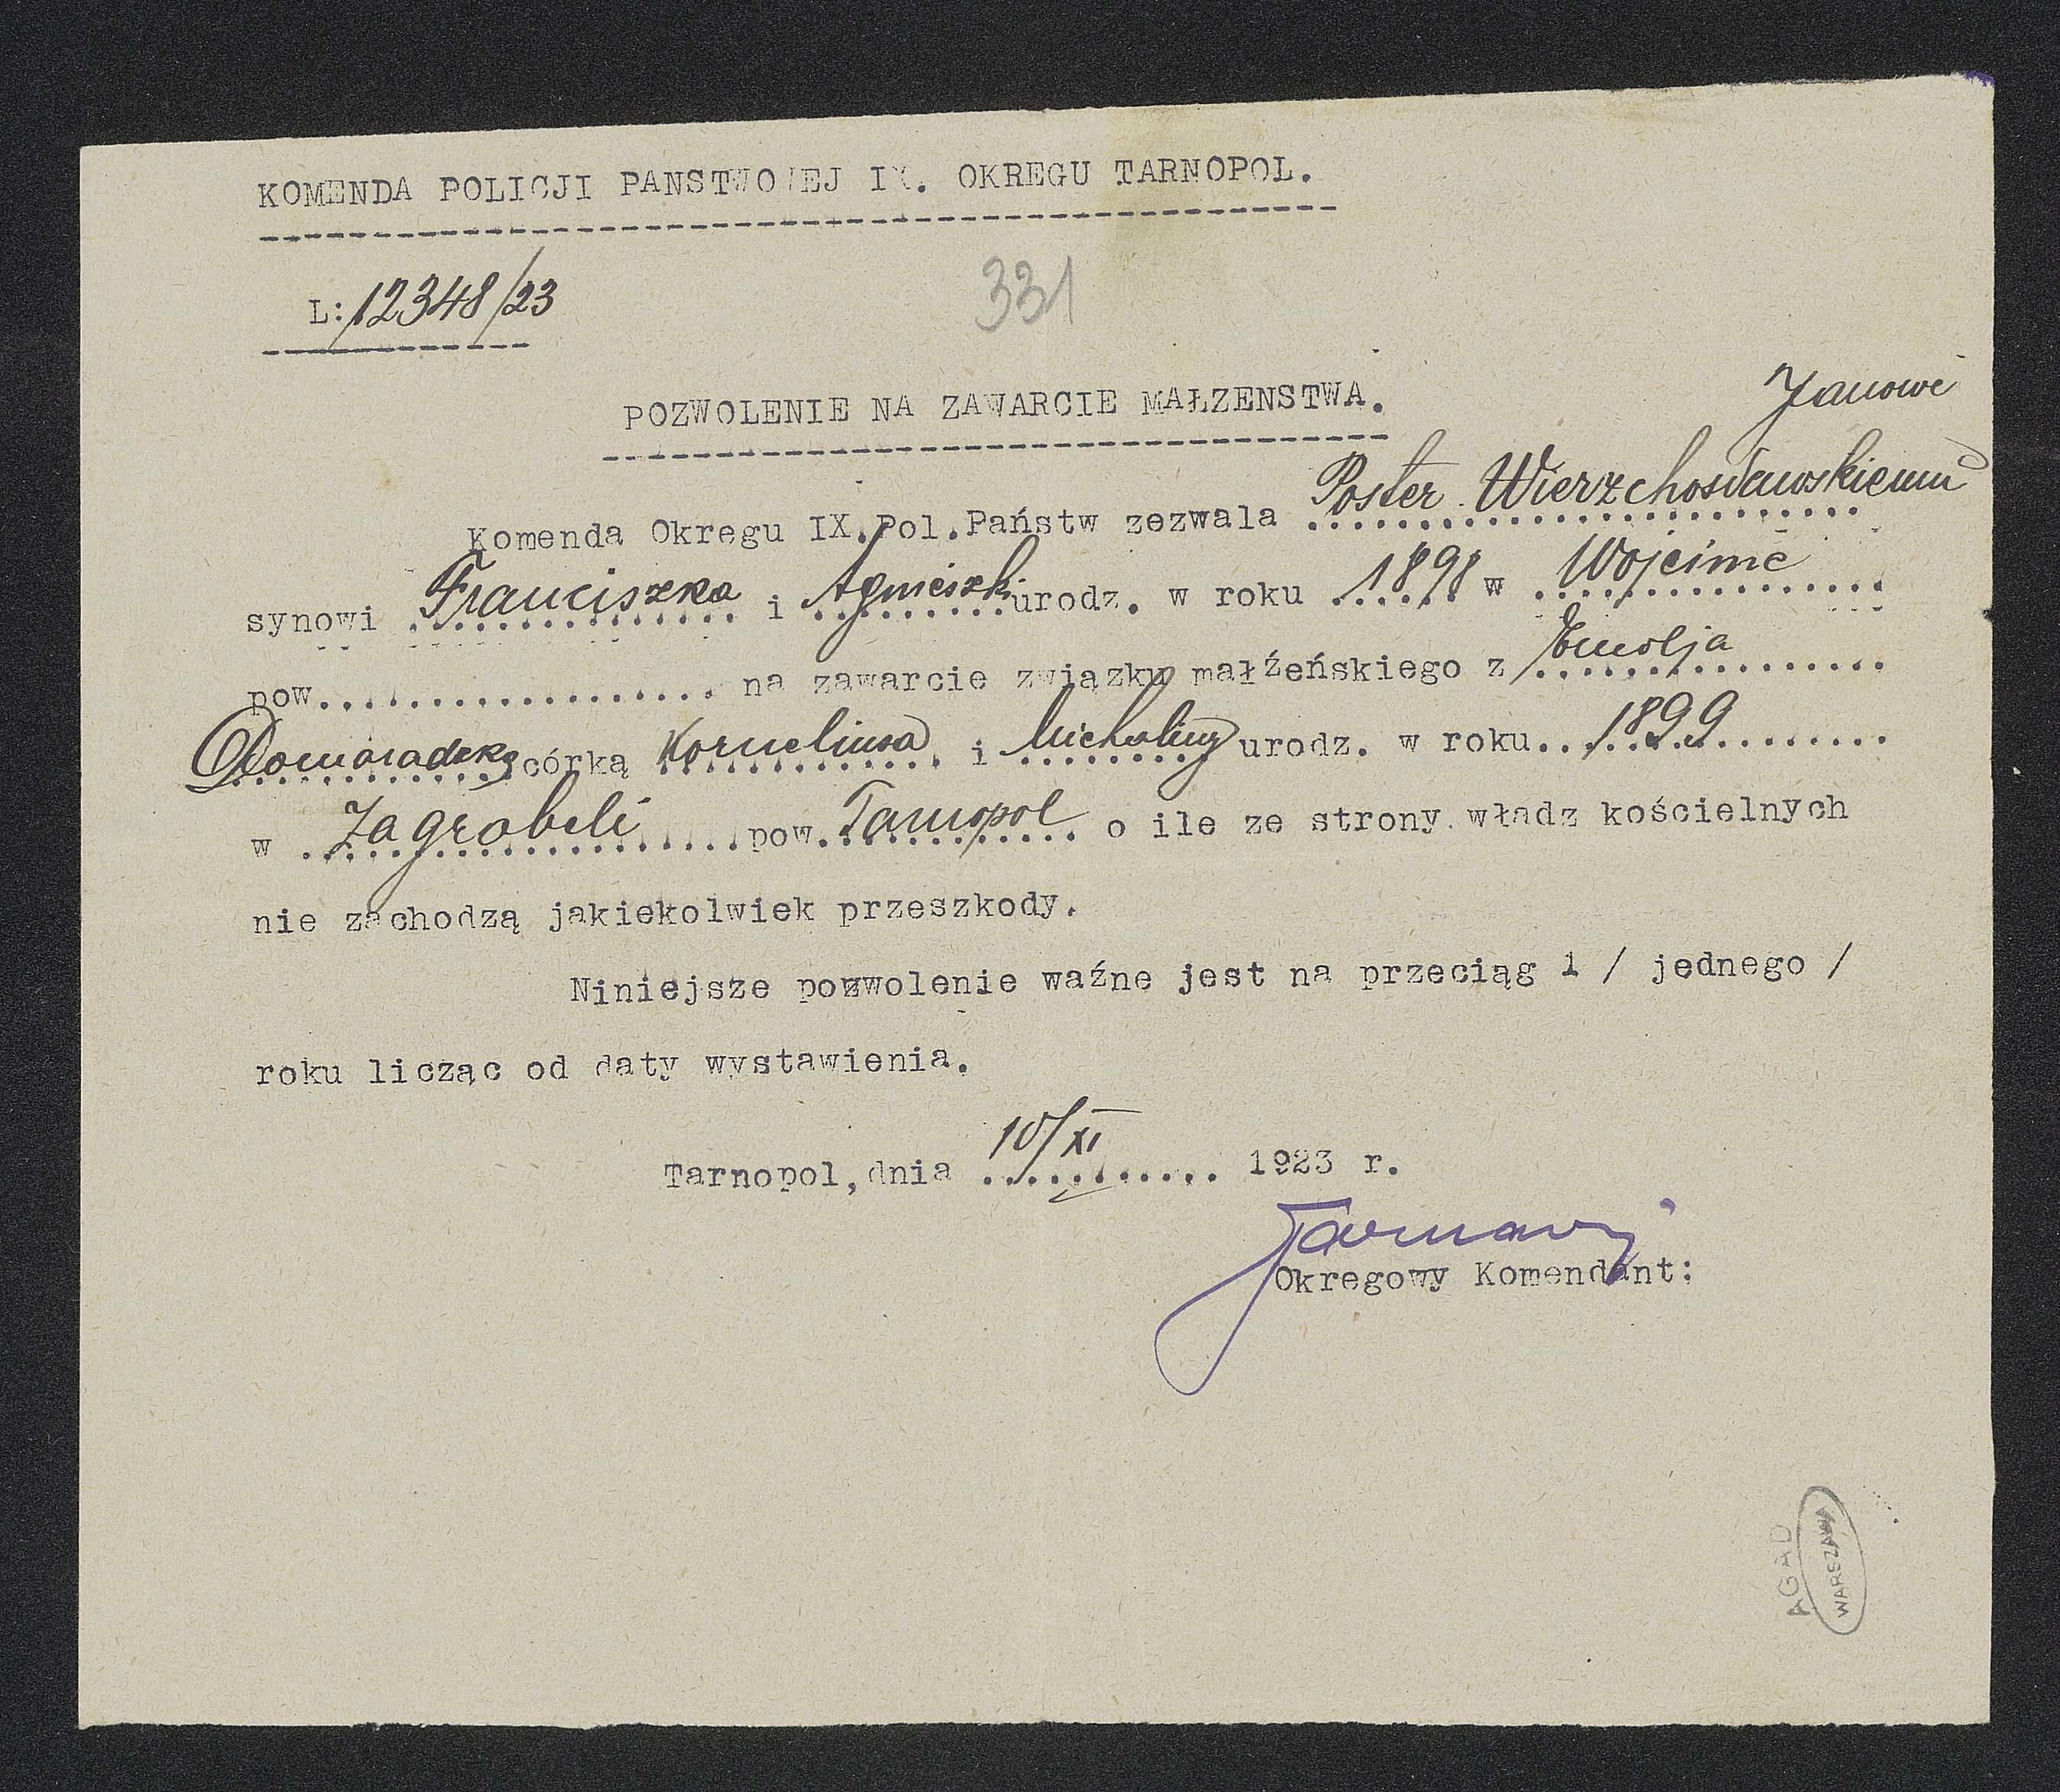 KOMENDA POLICJI PANSTWOWEJ IX. OKREGU TARNOPOL.
L: 12348/23
331
POZWOLENIE NA ZAWARCIE MAŁZENSTWA.
Janowi
Komenda Okregu IX.Pol.Państw zezwala Poster. Wierzchosławskiemu
synowi Franciszka i Agnieszki urodz. w roku 1898 w Wojcinie
pow.................... na zawarcie związku małźeńskiego z Emilja
Domaradzką córką Korneliusa i Michaliny urodz. w roku 1899
w Zagrobeli pow. Tarnopol o ile ze strony władz kościelnych
nie zachodzą jakiekolwiek przeszkody.
Niniejsze pozwolenie waźne jest na przeciąg 1 / jednego /
roku licząc od daty wystawienia.
Tarnopol,dnia 10/XI 1923 r.
Okregowy Komendant:
AGAD
WARSZAWA